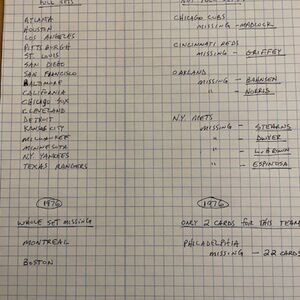 FULL SETS
ATLANTA
HOUSTON
LOS ANGELES
PITTSBURGH
ST. LOUIS
SAN DIEGO
SAN FRANCISCO
BALTIMORE
CALIFORNIA
CHICAGO SOX
CLEVELAND
DETROIT
KANSAS CITY
MILWAUKEE
MINNESOTA
N.Y. YANKEES
TEXAS RANGERS
CHICAGO CUBS
MISSING - MADLOCK
CINCINNATI REDS
MISSING - GRIFFEY
OAKLAND
MISSING - BAHNSEN
" - NORRIS
N.Y. METS
MISSING - STEARNS
" - DWYER
" - L. BROWN
" - ESPINOSA
1976
WHOLE SET MISSING
MONTREAL
BOSTON
1976
ONLY 2 CARDS FOR THIS TEAM
PHILADELPHIA
MISSING - 22 CARDS